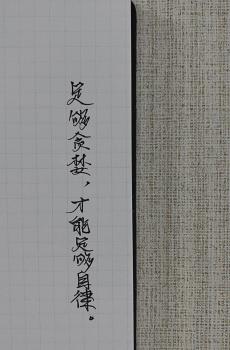 足够贪婪，才能足够自律。